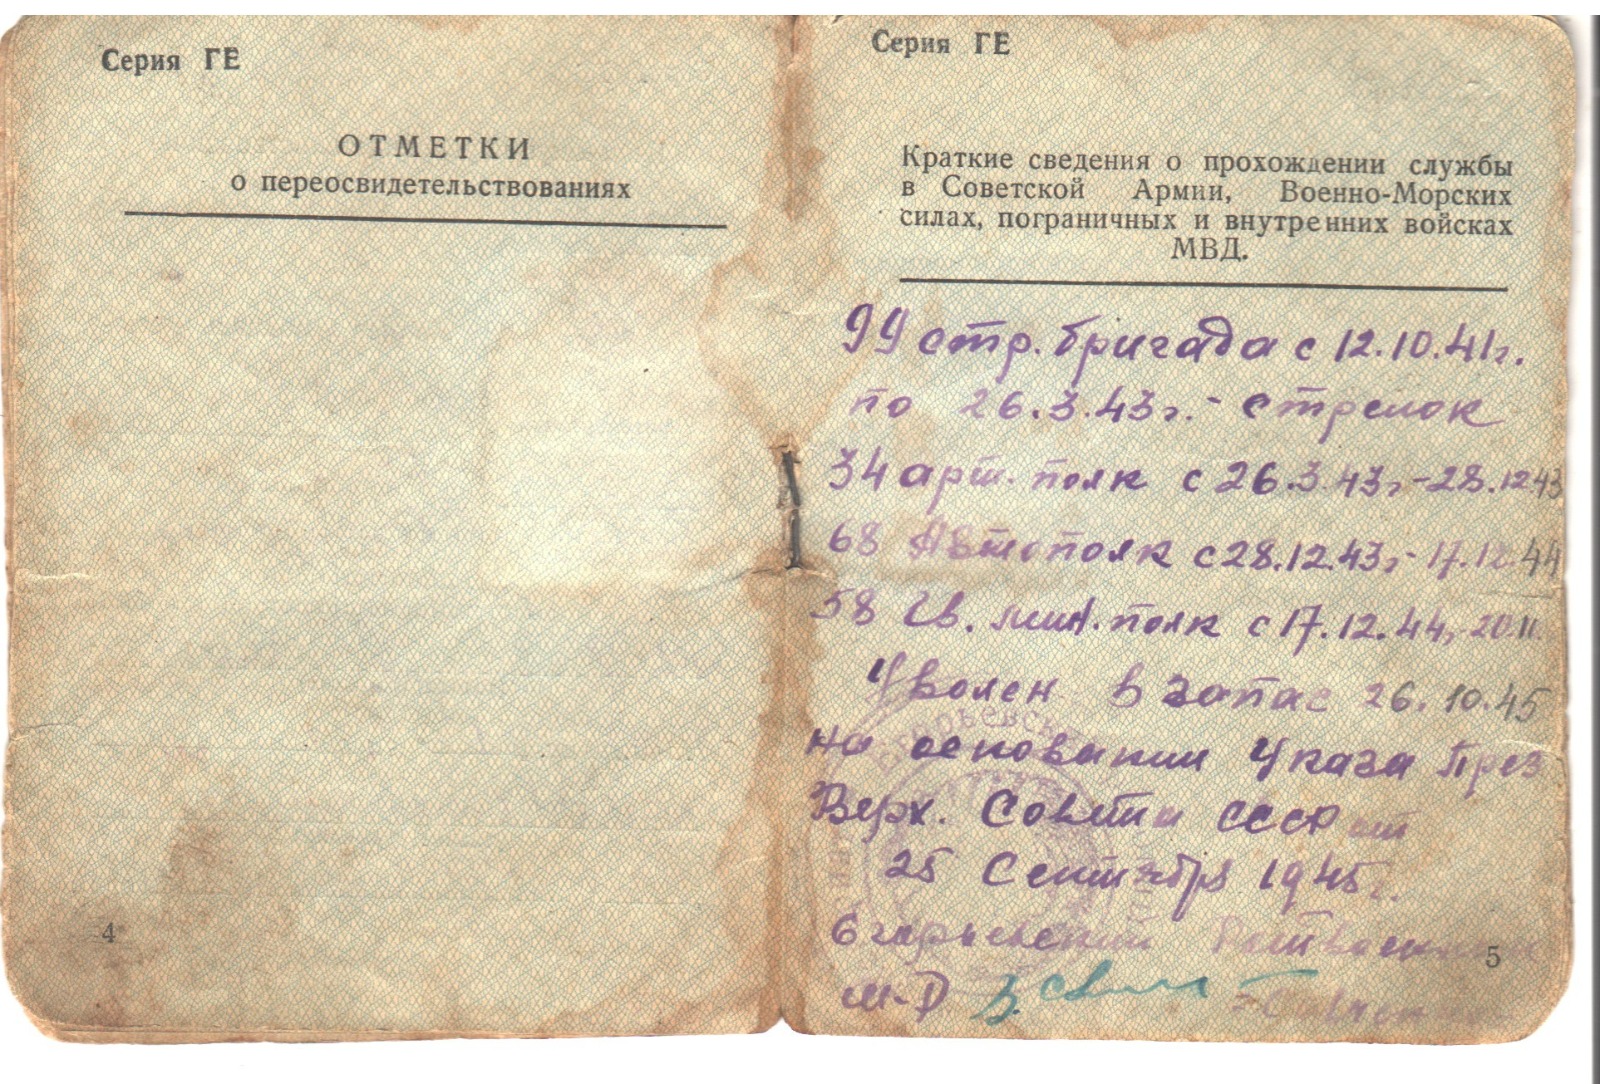 Серия ГЕ
ОТМЕТКИ
о переосвидетельствованиях
4
Серия ГЕ
Краткие сведения о прохождении службы
в Советской Армии, Военно-Морских
силах, пограничных и внутренних войсках
МВД.
99 стр. бригада с 12.10.41г.
по 26.3.43г. - стрелок
34 арт. полк с 26.3.43г - 28.12.43
68 Автополк с 28.12.43г - 17.12.44
58 Гв. мин. полк с 17.12.44г - 20.11.
Уволен в запас 26.10.45
на основании Указа През
Верх. Совета СССР от
25 Сентября 1945г.
Егорьевский
5